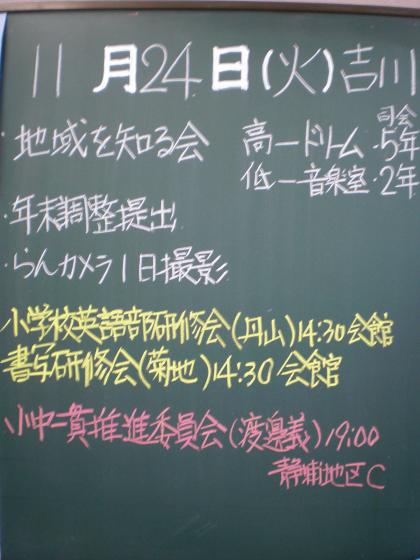 11月24日(火)吉川
・地域を知る会 高ードリトム・5年
司会
低ー音楽室・2年
・年末調整提出
・らんカメラ1日撮影
小学校英語部研修会(丹山)14:30会館
書写研修会(菊地)14:30会館
小中一貫推進委員会(渡邉義)19:00
静浦地区C